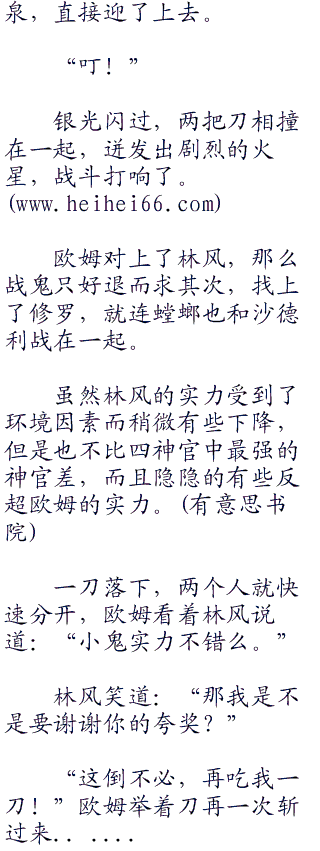 泉，直接迎了上去。
“叮！”
银光闪过，两把刀相撞
在一起，迸发出剧烈的火
星，战斗打响了。
(www.heihei66.com)
欧姆对上了林风，那么
战鬼只好退而求其次，找上
了修罗，就连螳螂也和沙德
利战在一起。
虽然林风的实力受到了
环境因素而稍微有些下降，
但是也不比四神官中最强的
神官差，而且隐隐的有些反
超欧姆的实力。(有意思书
院)
一刀落下，两个人就快
速分开，欧姆看着林风说
道：“小鬼实力不错么。”
林风笑道：“那我是不
是要谢谢你的夸奖？”
“这倒不必，再吃我一
刀！”欧姆举着刀再一次斩
过来．．．．．．